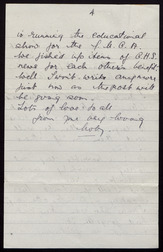 4
is running the educational
show for the Y.M.C.A.
We fished up items of P.H.S.
news for each others benefit.
Well I won't write anymore
just now as the post will
be going soon.
Lots of love to all
from yr very loving